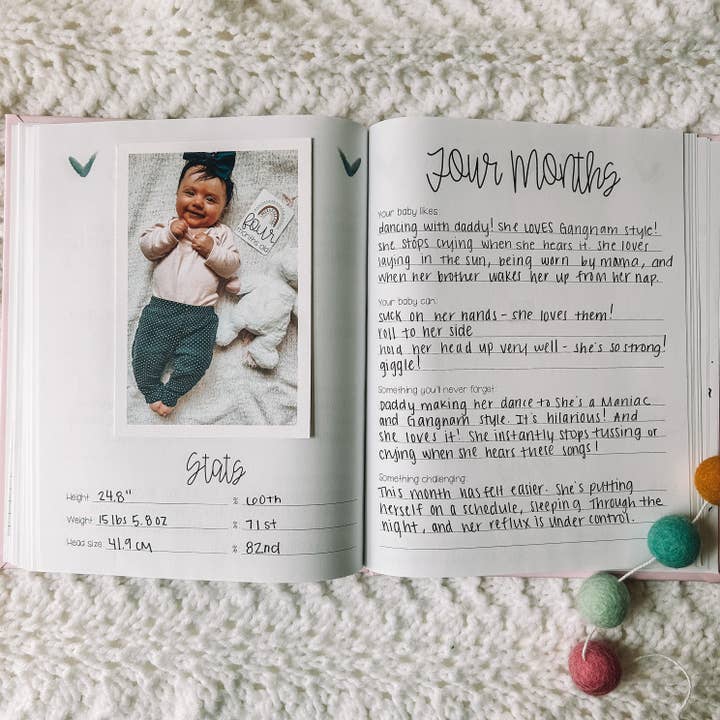 four
months old
Stats
Height 24.8" % 60th
Weight 15 lbs 5.8 oz % 71st
Head size 41.9 cm % 82nd
Four Months
Your baby likes:
dancing with daddy! She LOVES Gangnam Style!
She stops crying when she hears it. She loves
laying in the sun, being worn by mama, and
when her brother wakes her up from her nap.
Your baby can:
suck on her hands - she loves them!
roll to her side
hold her head up very well - she's so strong!
giggle!
Something you'll never forget:
Daddy making her dance to She's a Maniac
and Gangnam Style. It's hilarious! And
she loves it! She instantly stops fussing or
crying when she hears these songs!
Something challenging:
This month has felt easier. She's putting
herself on a schedule, sleeping through the
night, and her reflux is under control.